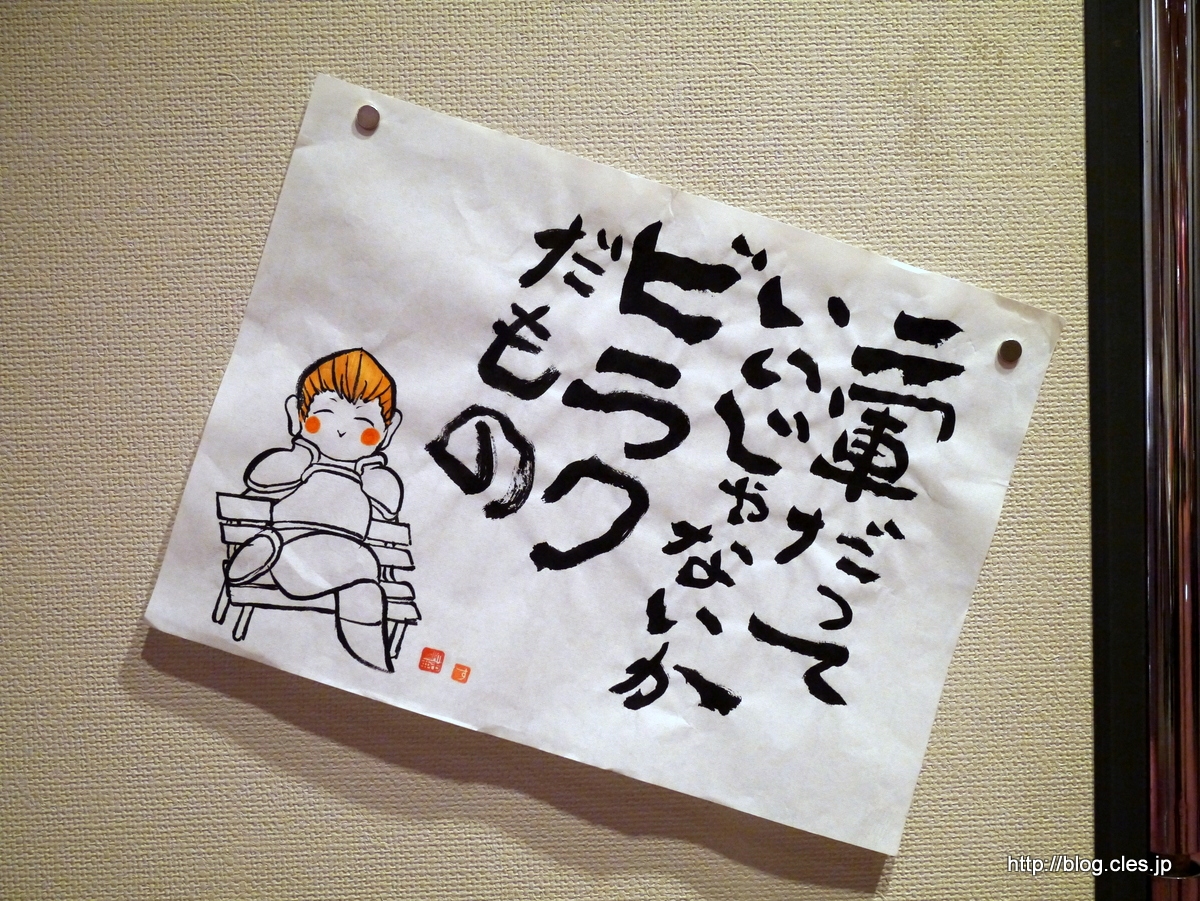 二軍だって
いいじゃないか
ビラク
だもの
す
http://blog.cles.jp